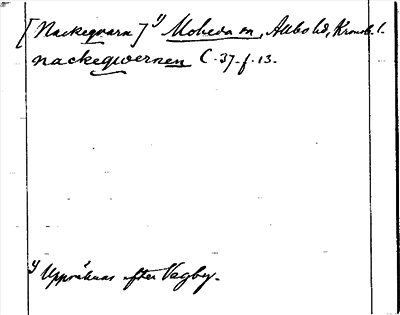 [Nackeqvarn] 1) Moheda sn, Allbo hd, Kronob. l.
nackeqwernen C. 37. f. 13.
1) Uppräknas efter Vegby.